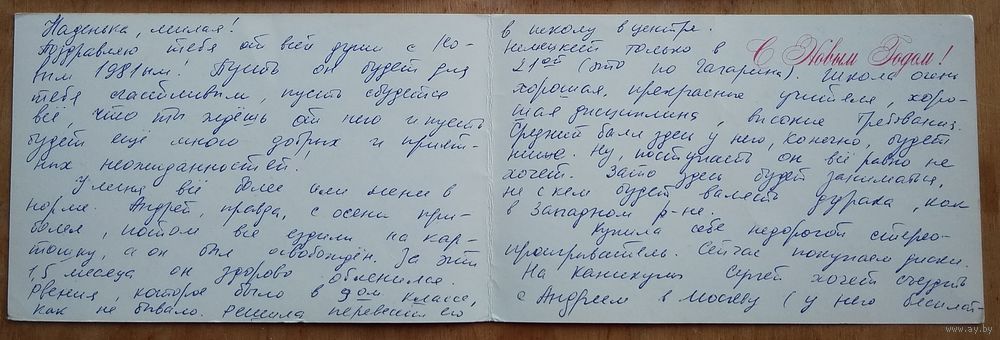 Наденька, милая!
Поздравляю тебя от всей души с Но-
вым 1981ым! Пусть он будет для
тебя счастливым, пусть сбудется
всё, что ты ждёшь от него и пусть
будет ещё много добрых и прият-
ных неожиданностей!
У меня всё более или менее в
норме. Андрей, правда, с осени при-
болел, потом все ездили на кар-
тошку, а он был освобождён. За эти
1,5 месяца он здорово обленился.
Рвения, которое было в 9ом классе,
как не бывало. Решила перевести его
в школу в центре.
Немецкий только в
С Новым Годом!
21ой (это по Гагарина). Школа очень
хорошая, прекрасные учителя, хоро-
шая дисциплина, высокие требования.
Средний балл здесь у него, конечно, будет
ниже. Ну, поступать он всё равно не
хочет. Зато здесь будет заниматься,
не с кем будет валять дурака, как
в Западном р-не.
Купила себе недорогой стерео-
проигрыватель. Сейчас покупаем диски.
На каникулы Сергей хочет съездить
с Андреем в Москву (у него бесплат-
www.ay.by